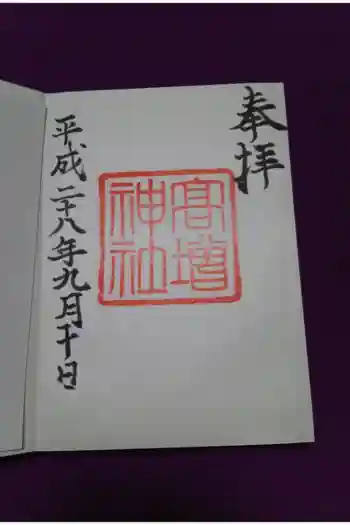 奉拝
高増
神社
平成二十八年九月十日